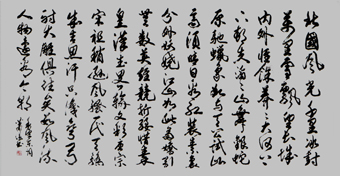 北國風光千里冰封
萬里雪飄望長城
內外惟餘莽莽大河上
下頓失滔滔山舞銀蛇
原馳蠟象欲與天公試比
高須晴日看紅裝素裹
分外妖嬈江山如此多嬌引
無數英雄競折腰惜秦
皇漢武略輸文采唐宗
宋祖稍遜風騷一代天驕
成吉思汗只識彎弓
射大雕俱往矣數風流
人物還看今朝